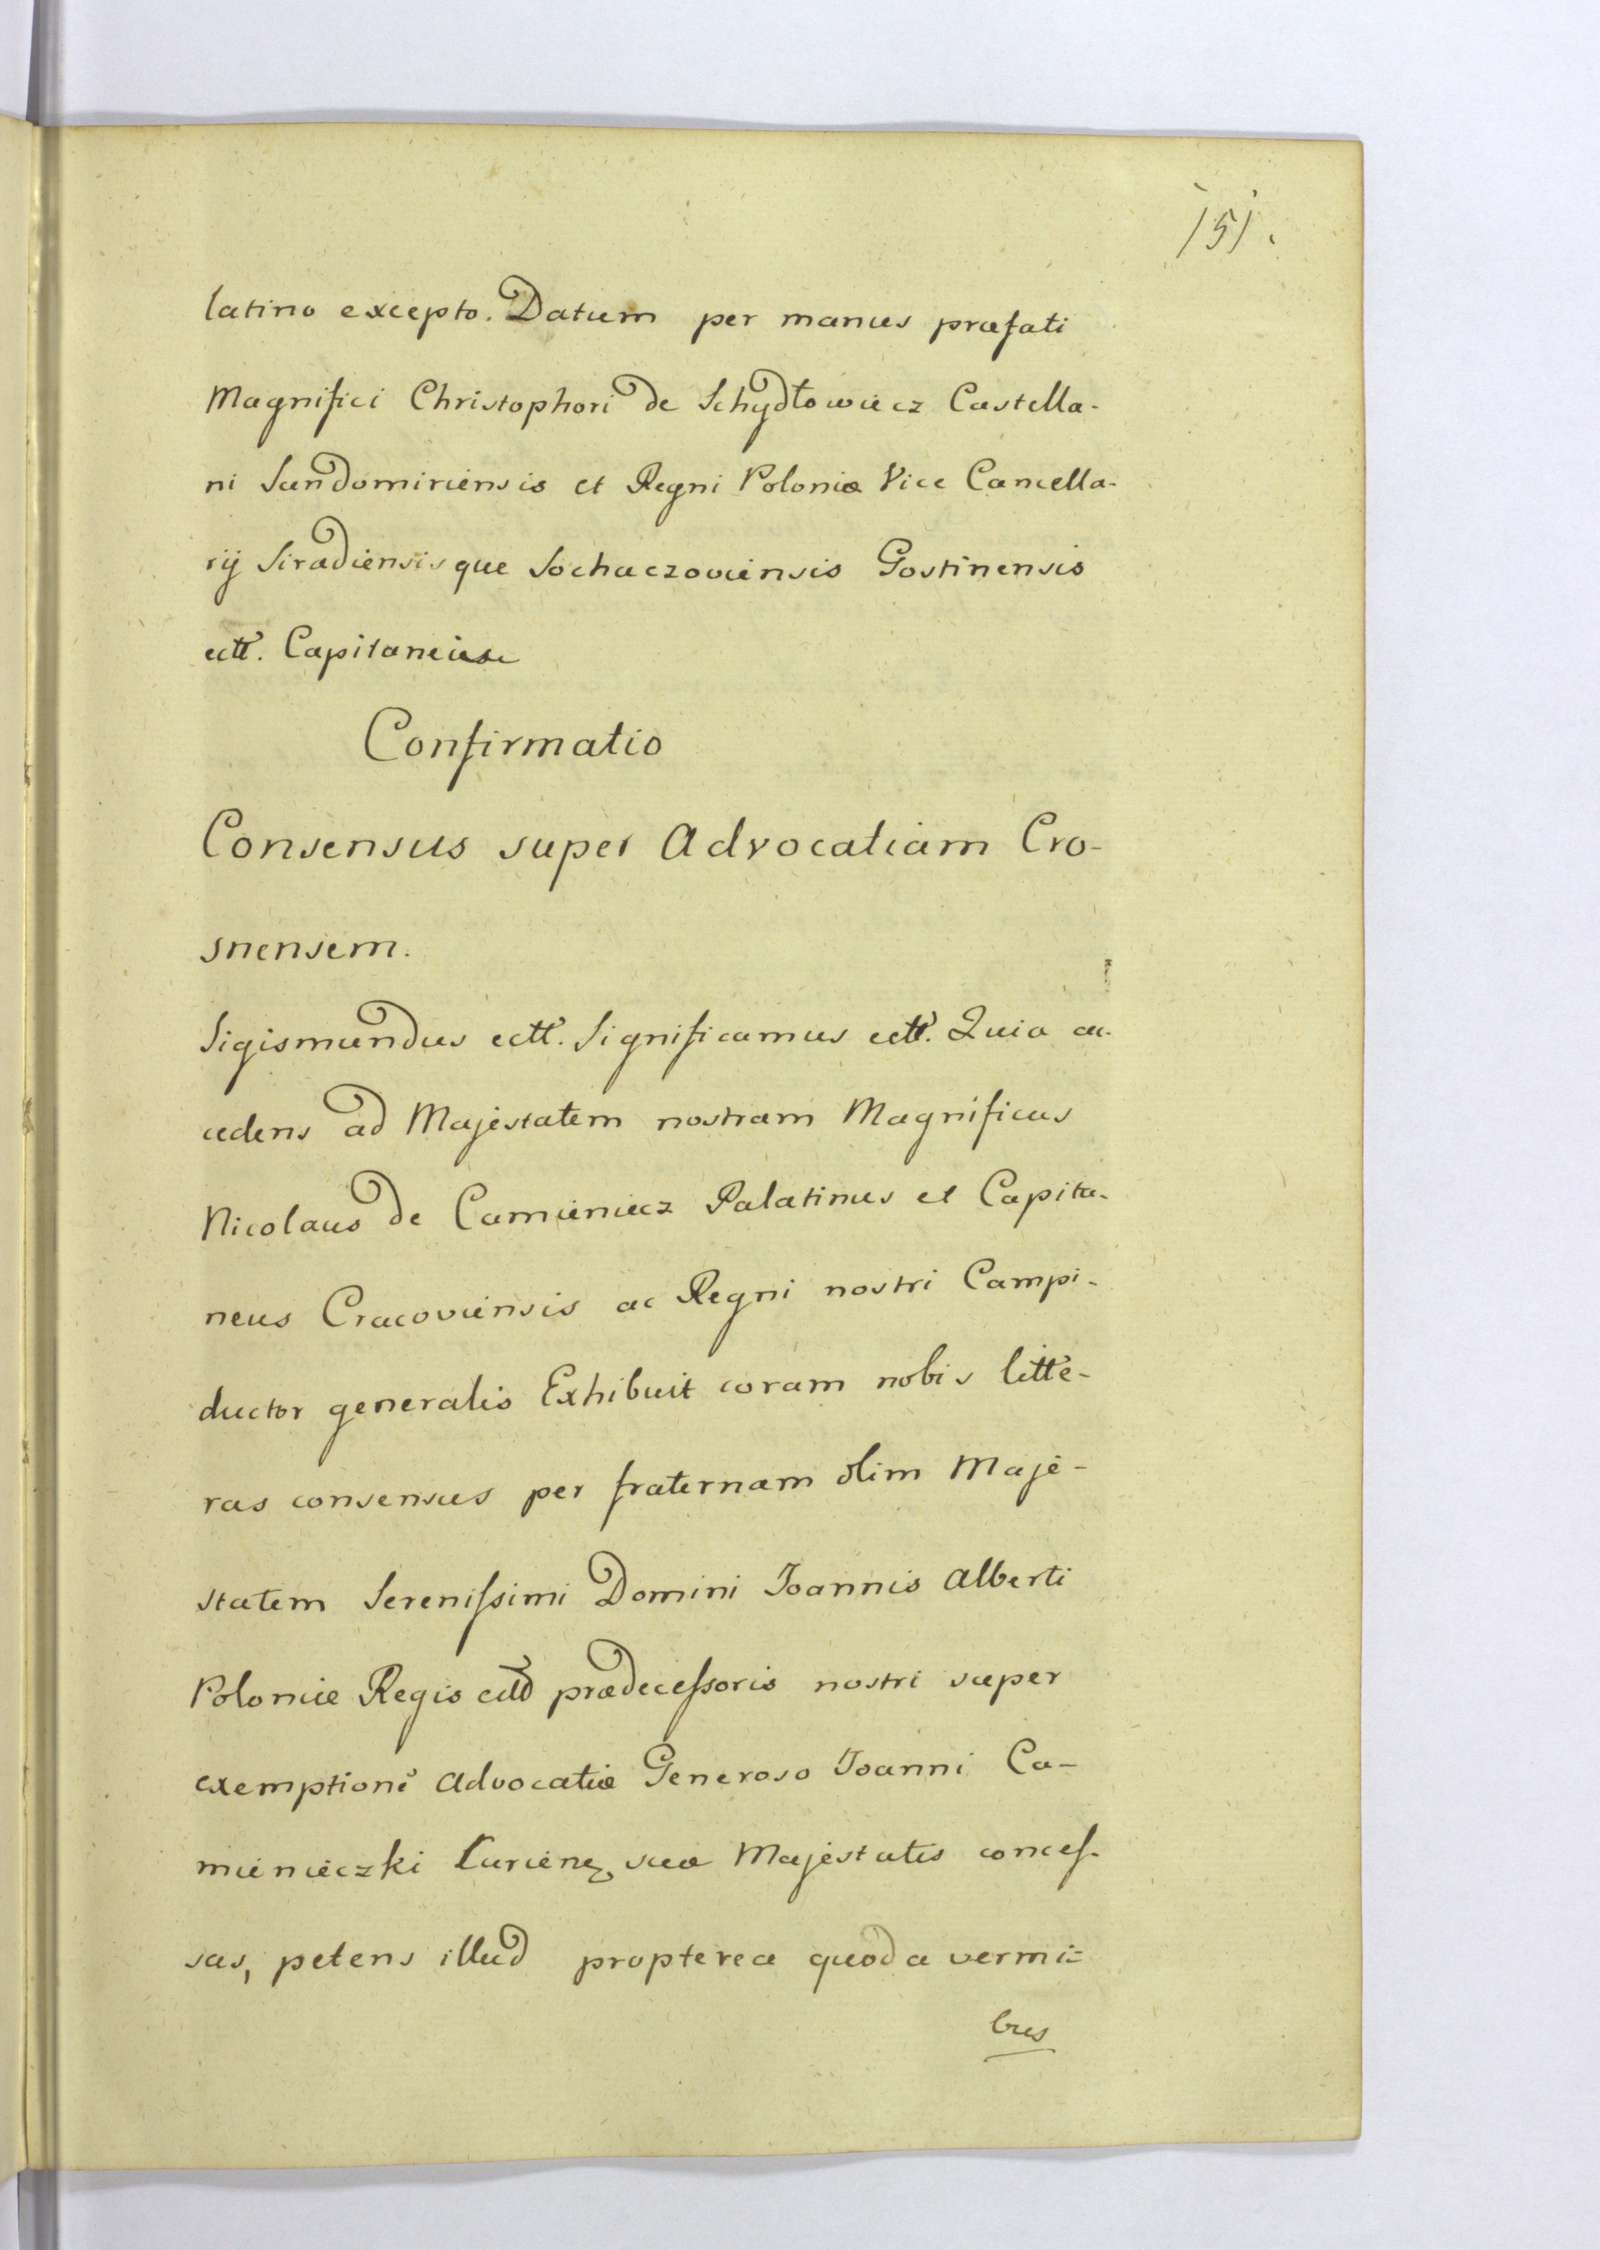 151.
latino excepto. Datum per manus præfati
Magnifici Christophori de Schydłowiecz Castella-
ni Sandomiriensis et Regni Poloniæ Vice Cancella-
rij Siradiensisque Sochaczoviensis Gostinensis
ectt. Capitaneus
Confirmatio
Consensus super Advocatiam Cro-
snensem.
Sigismundus ectt. Significamus ectt. Quia ac-
cedens ad Majestatem nostram Magnificus
Nicolaus de Camieniecz Palatinus et Capita-
neus Cracoviensis ac Regni nostri Campi-
ductor generalis Exhibuit coram nobis litte-
ras consensus per fraternam olim Maje-
statem Serenissimi Domini Joannis Alberti
Poloniæ Regis prædecessoris nostri super
exemptione Advocatiæ Generoso Joanni Ca-
mienieczki suæ Majestatis conces-
sas, petens illud propterea quod a vermi=
bus